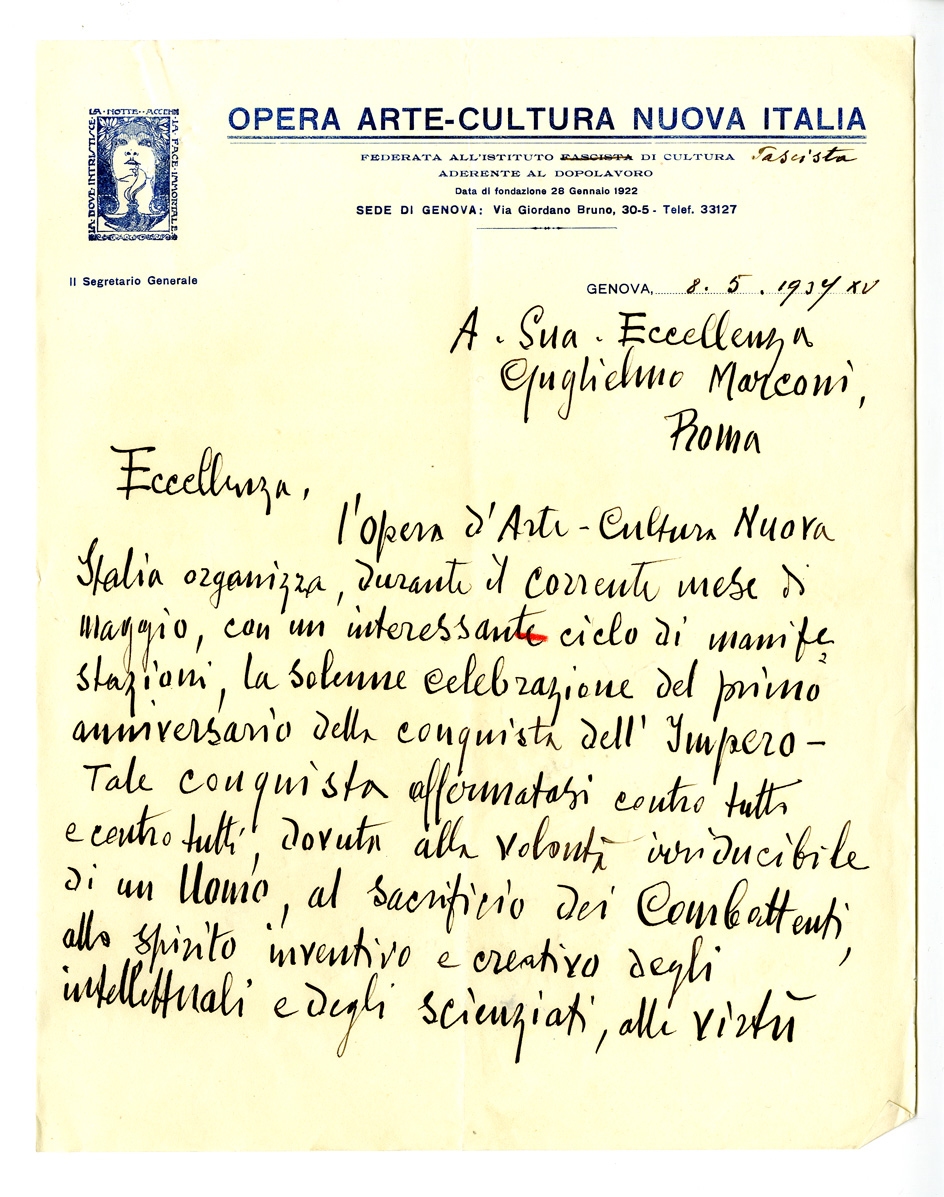 OPERA ARTE-CULTURA NUOVA ITALIA
FEDERATA ALL'ISTITUTO FASCISTA DI CULTURA Fascista
ADERENTE AL DOPOLAVORO
Data di fondazione 28 Gennaio 1922
SEDE DI GENOVA: Via Giordano Bruno, 30-5 - Telef. 33127
LA NOTTE ACCEN
LA FACE IMMORTALE
LA DOVE INTRISTISCE
Il Segretario Generale
GENOVA, 8. 5. 1937 XV
A. Sua. Eccellenza
Guglielmo Marconi,
Roma
Eccellenza,
l'Opera d'Arte-Cultura Nuova
Italia organizza, durante il corrente mese di
maggio, con un interessante ciclo di manife
stazioni, la solenne celebrazione del primo
anniversario della conquista dell'Impero -
Tale conquista affermatasi contro tutti
e contro tutti, dovuta alla volontà irriducibile
di un Uomo, al sacrificio dei Combattenti,
allo spirito inventivo e creativo degli
intellettuali e degli scienziati, alle virtù